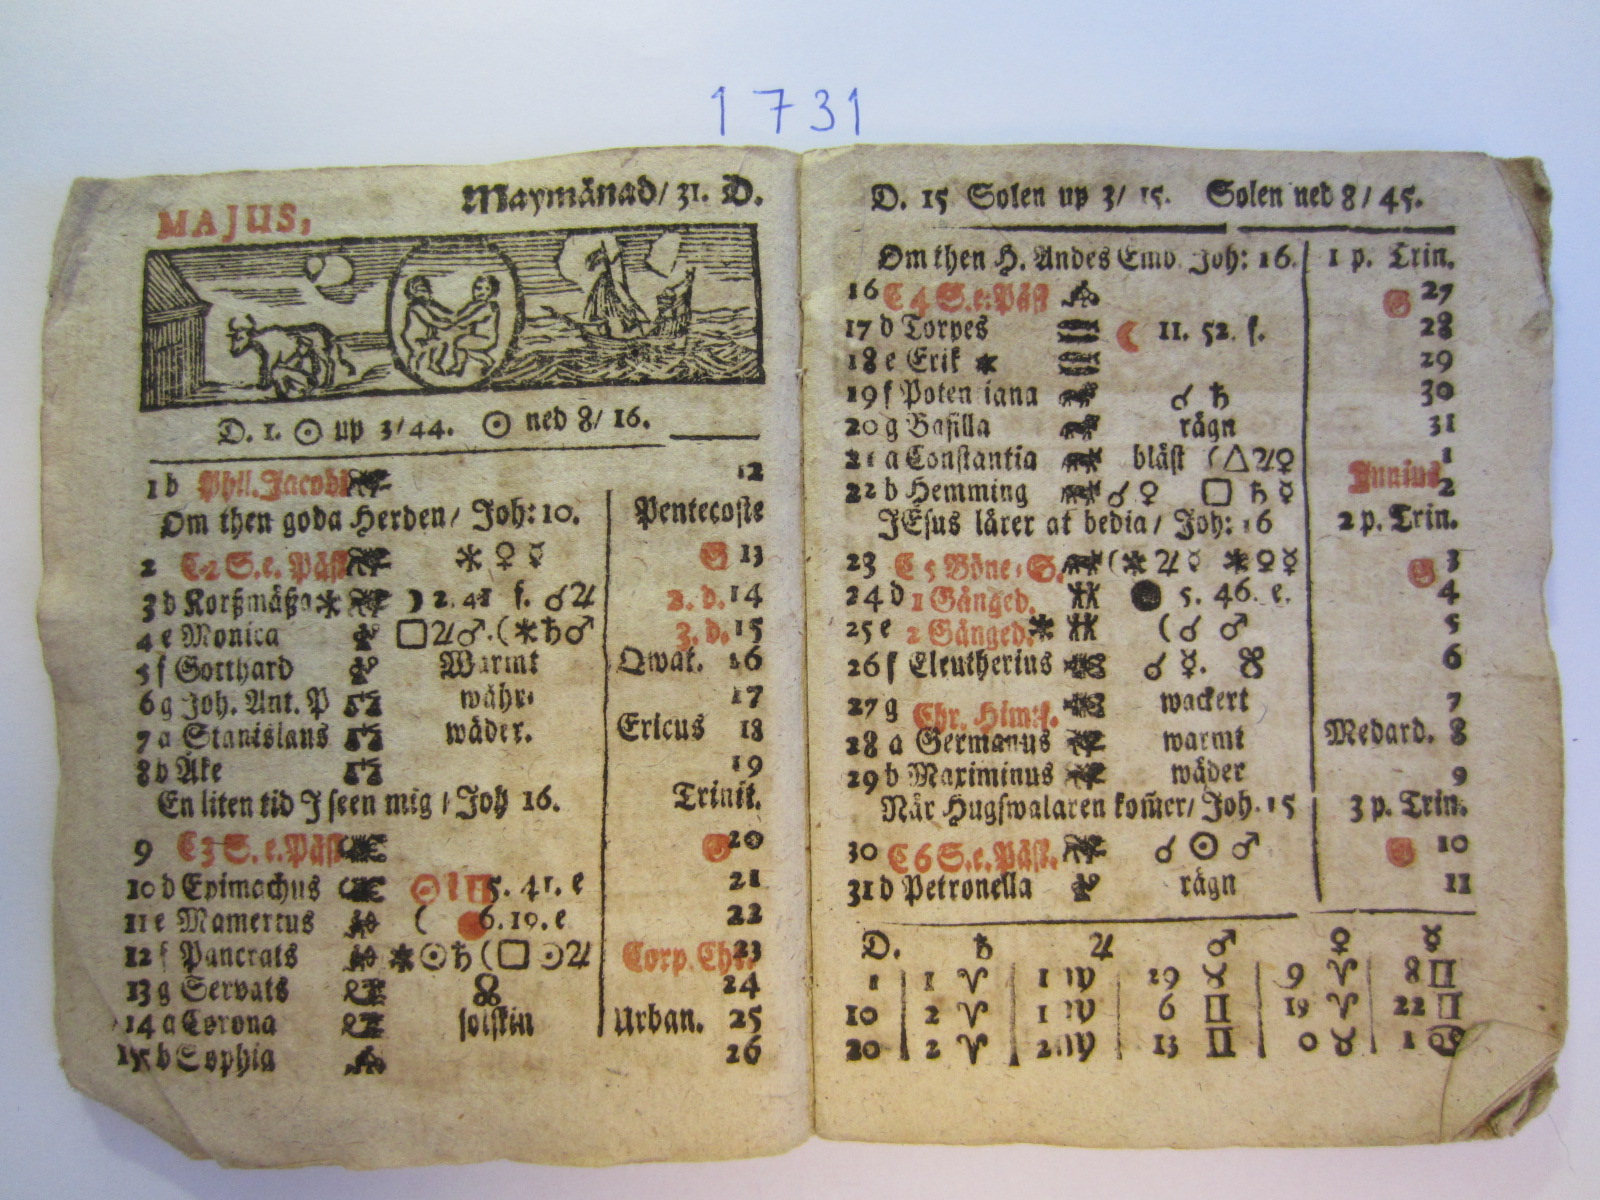 1731
MAJUS, Maymånad/ 31. D.
D. 1. ☉ up 3/44. ☉ ned 8/ 16.
1 b Phil. Jacobi 12
Om then goda Herden/ Joh: 10. Pentecoste
2 C 2 S. e. Påsk ⚹ ♀ ☿ G 13
3 d Korßmäßa ⚹ ☽ 2. 41 f. ☌ ♃ 2. d. 14
4 e Monica □ ♃ ♂. ( ⚹ ♄ ♂ 3. d. 15
5 f Gotthard Warmt Qwat. 16
6 g Joh. Ant. P währ 17
7 a Stanislaus wäder. Ericus 18
8 b Åke 19
En liten tid J seen mig / Joh 16. Trinit.
9 C 3 S. e. Påsk G 20
10 d Epimachus ☉ i ♊ 5. 41. e 21
11 e Mamertus ( 6. 19. e 22
12 f Pancrats ⚹ ☉ ♄ ( □ ☉ ♃ Corp. Chr. 23
13 g Servats ☊ 24
14 a Corona solskin Urban. 25
15 b Sophia 26
D. 15 Solen up 3/ 15. Solen ned 8/ 45.
Om then H. Andes Emb. Joh: 16. 1 p. Trin.
16 C 4 S. e. Påsk G 27
17 d Torpes ☾ 11. 52. f. 28
18 e Erik ⚹ 29
19 f Potentiana ☌ ♄ 30
20 g Basilla rägn 31
21 a Constantia bläst ( △ ♃ ♀ 1
22 b Hemming ☌ ♀ □ ♄ ☿ Junius 2
JEsus lärer at bedia/ Joh: 16 2 p. Trin.
23 C 5 Böne-S. ( ⚹ ♃ ☿ ⚹ ♀ ☿ G 3
24 d 1 Gånged. ● 5. 46. e. 4
25 e 2 Gånged. ⚹ ( ☌ ♂ 5
26 f Eleutherius ☌ ☿. ☋ 6
27 g Chr. Himf. wackert 7
28 a Germanus warmt Medard. 8
29 b Maximinus wäder 9
När Hugswalaren kom̃er/ Joh. 15 3 p. Trin.
30 C 6 S. e. Påsk. ☌ ☉ ♂ G 10
31 d Petronella rägn 11
D. ♄ ♃ ♂ ♀ ☿
1 1 ♈ 1 ♍ 29 ♉ 9 ♈ 8 ♊
10 2 ♈ 1 ♍ 6 ♊ 19 ♈ 22 ♊
20 2 ♈ 2 ♍ 13 ♊ 0 ♉ 1 ♋